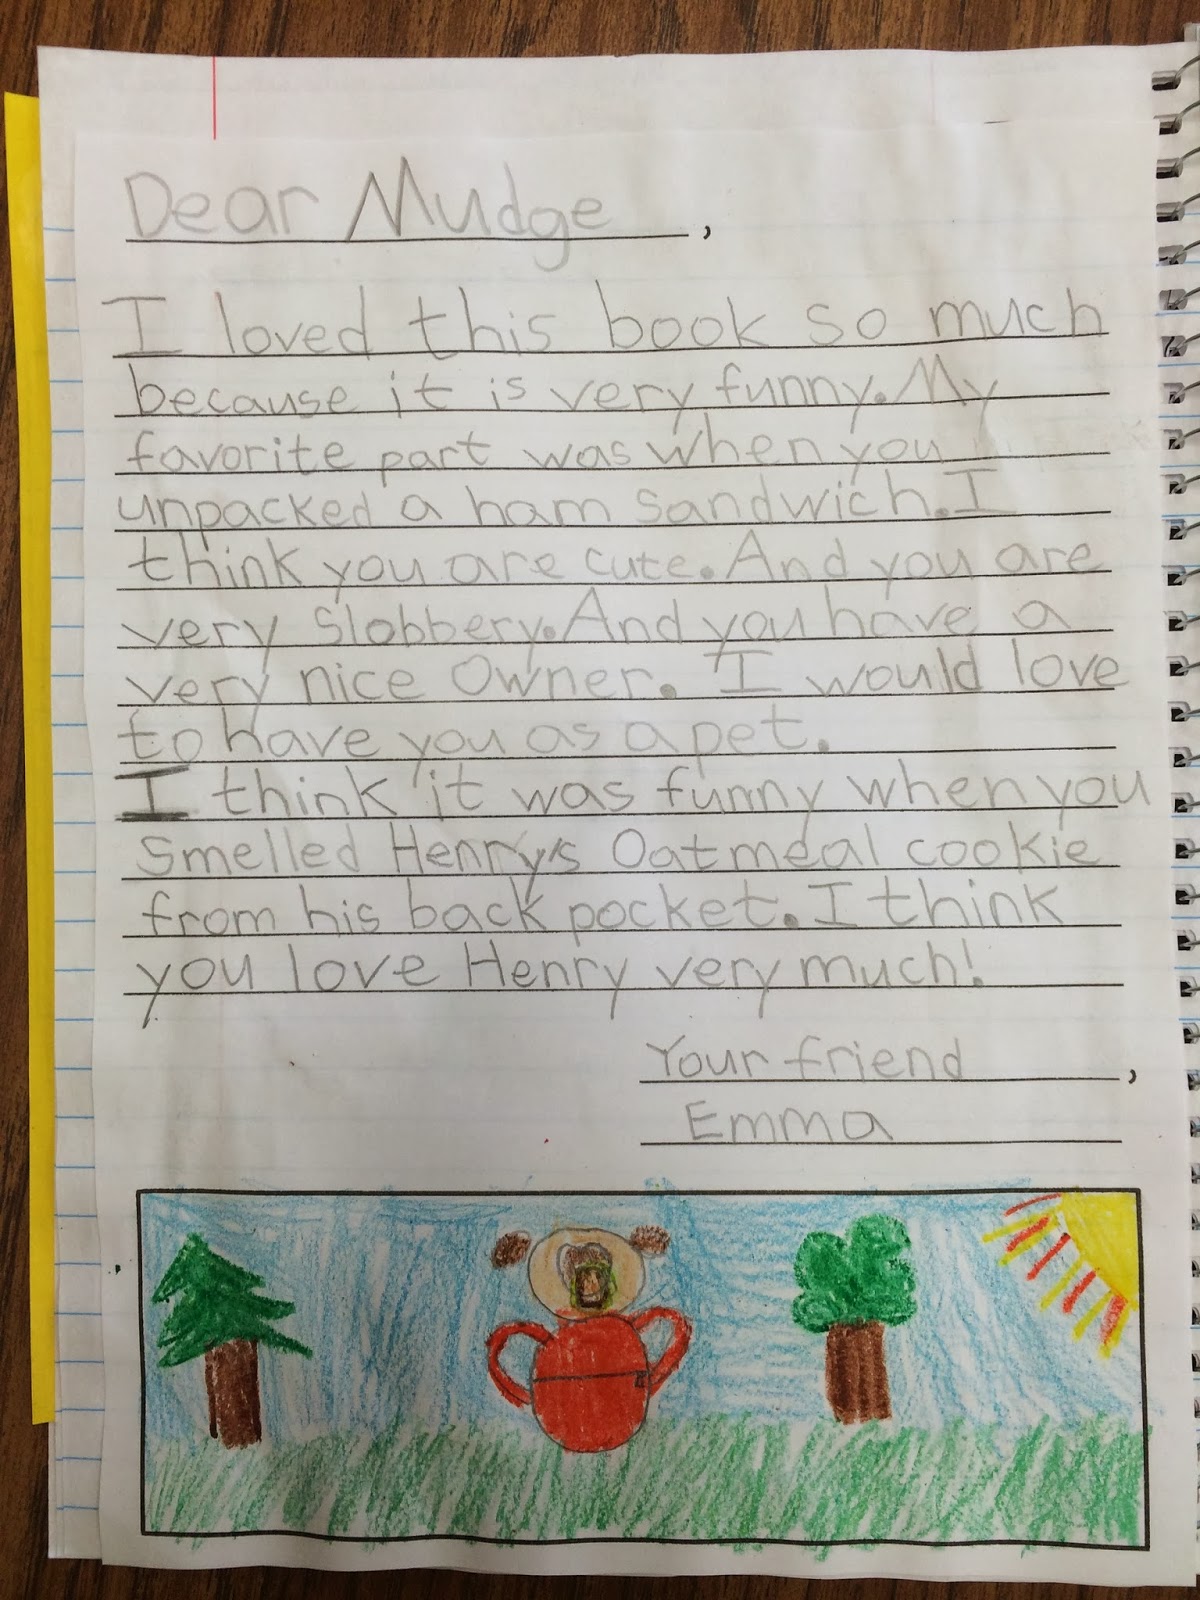 Dear Mudge,
I loved this book so much
because it is very funny. My
favorite part was when you
unpacked a ham sandwich. I
think you are cute. And you are
very slobbery. And you have a
very nice owner. I would love
to have you as a pet.
I think it was funny when you
smelled Henry's Oatmeal cookie
from his back pocket. I think
you love Henry very much!
Your friend,
Emma